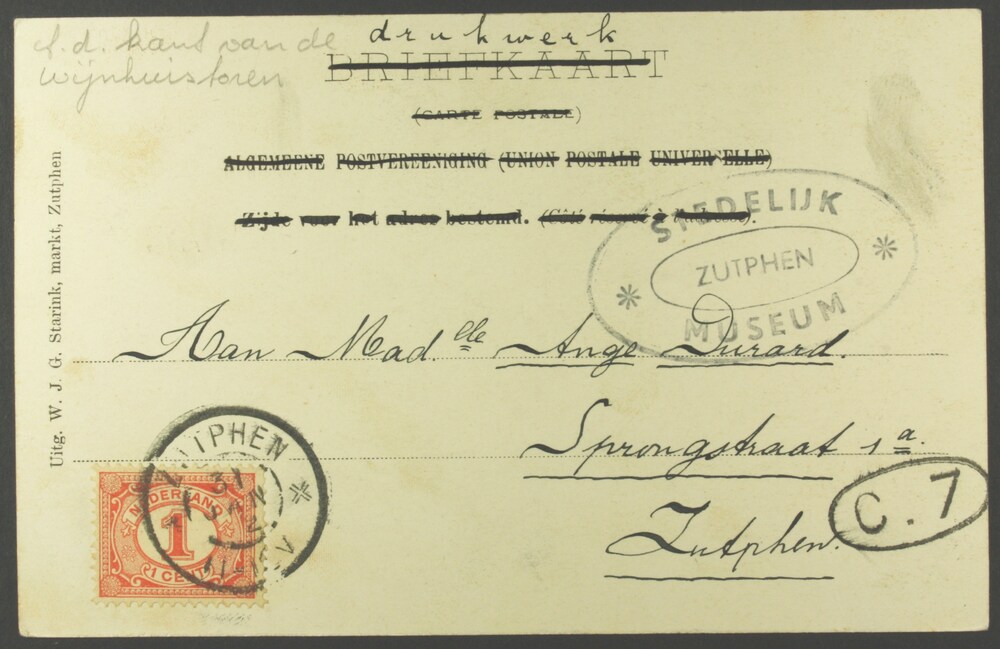 t.d. kant van de
wijnhuistoren
drukwerk
BRIEFKAART
(CARTE POSTALE)
ALGEMEENE POSTVEREENIGING (UNION POSTALE UNIVERSELLE)
Zijde voor het adres bestemd. (Côté réservé à l'adresse).
STEDELIJK
ZUTPHEN
MUSEUM
Aan Mad.elle Ange Durard.
Sprongstraat 1a.
Zutphen.
C. 7
Uitg. W. J. G. Starink, markt, Zutphen
ZUTPHEN
31
NEDERLAND
1
1 CENT